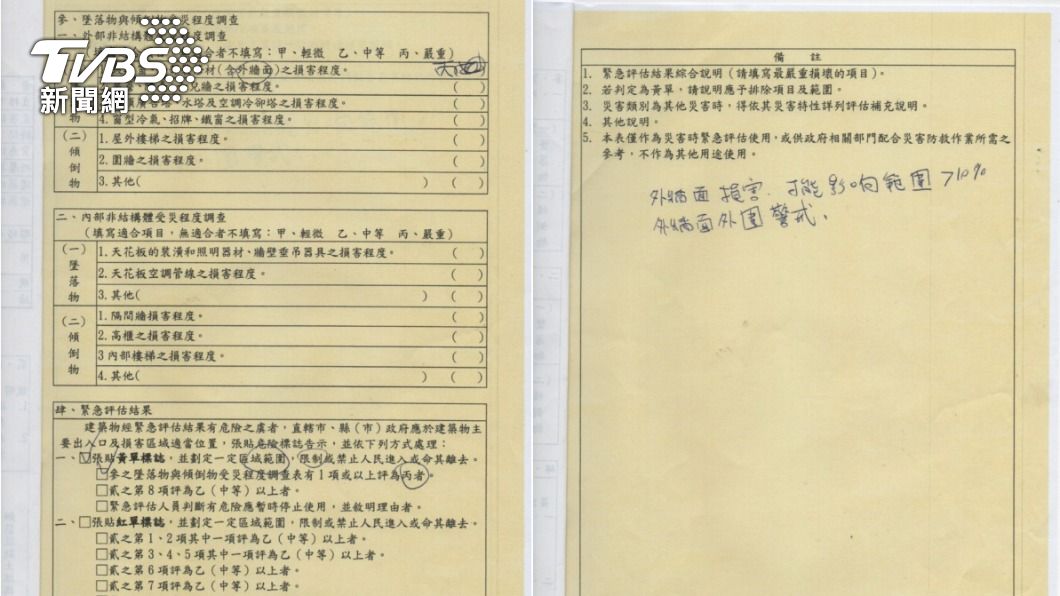 TVBS
新聞網
參、墜落物與傾倒物受災程度調查
一、外部非結構體 度調查
合者不填寫：甲、輕微 乙、中等 丙、嚴重)
材(含外牆面)之損害程度。
牆之損害程度。 ( )
水塔及空調冷卻塔之損害程度。 ( )
物 4.窗型冷氣、招牌、鐵窗之損害程度。 ( )
(二)傾倒物
1.屋外樓梯之損害程度。 ( )
2.圍牆之損害程度。 ( )
3.其他( ) ( )
二、內部非結構體受災程度調查
(填寫適合項目，無適合者不填寫：甲、輕微 乙、中等 丙、嚴重)
(一)墜落物
1.天花板的裝潢和照明器材、牆壁垂吊器具之損害程度。 ( )
2.天花板空調管線之損害程度。 ( )
3.其他( ) ( )
(二)傾倒物
1.隔間牆損害程度。 ( )
2.高櫃之損害程度。 ( )
3內部樓梯之損害程度。 ( )
4.其他( ) ( )
肆、緊急評估結果
建築物經緊急評估結果有危險之虞者，直轄市、縣(市)政府應於建築物主
要出入口及損害區域適當位置，張貼危險標誌告示，並依下列方式處理：
一、☑張貼黃單標誌，並劃定一定區域範圍，限制或禁止人民進入或命其離去。
☑參之墜落物與傾倒物受災程度調查表有1項或以上評為丙者。
□貳之第8項評為乙(中等)以上者。
□緊急評估人員判斷有危險應暫時停止使用，並敘明理由者。
二、□張貼紅單標誌，並劃定一定區域範圍，限制或禁止人民進入或命其離去。
□貳之第1、2項其中一項評為乙(中等)以上者。
□貳之第3、4、5項其中一項評為乙(中等)以上者。
□貳之第6項評為乙(中等)以上者。
□貳之第7項評為乙(中等)以上者。
備 註
1. 緊急評估結果綜合說明(請填寫最嚴重損壞的項目)。
2. 若判定為黃單，請說明應予排除項目及範圍。
3. 災害類別為其他災害時，得依其災害特性詳列評估補充說明。
4. 其他說明。
5. 本表僅作為災害時緊急評估使用，或供政府相關部門配合災害防救作業所需之
參考，不作為其他用途使用。
外牆面損害.可能影响範圍>10%
外牆面外圍警戒.